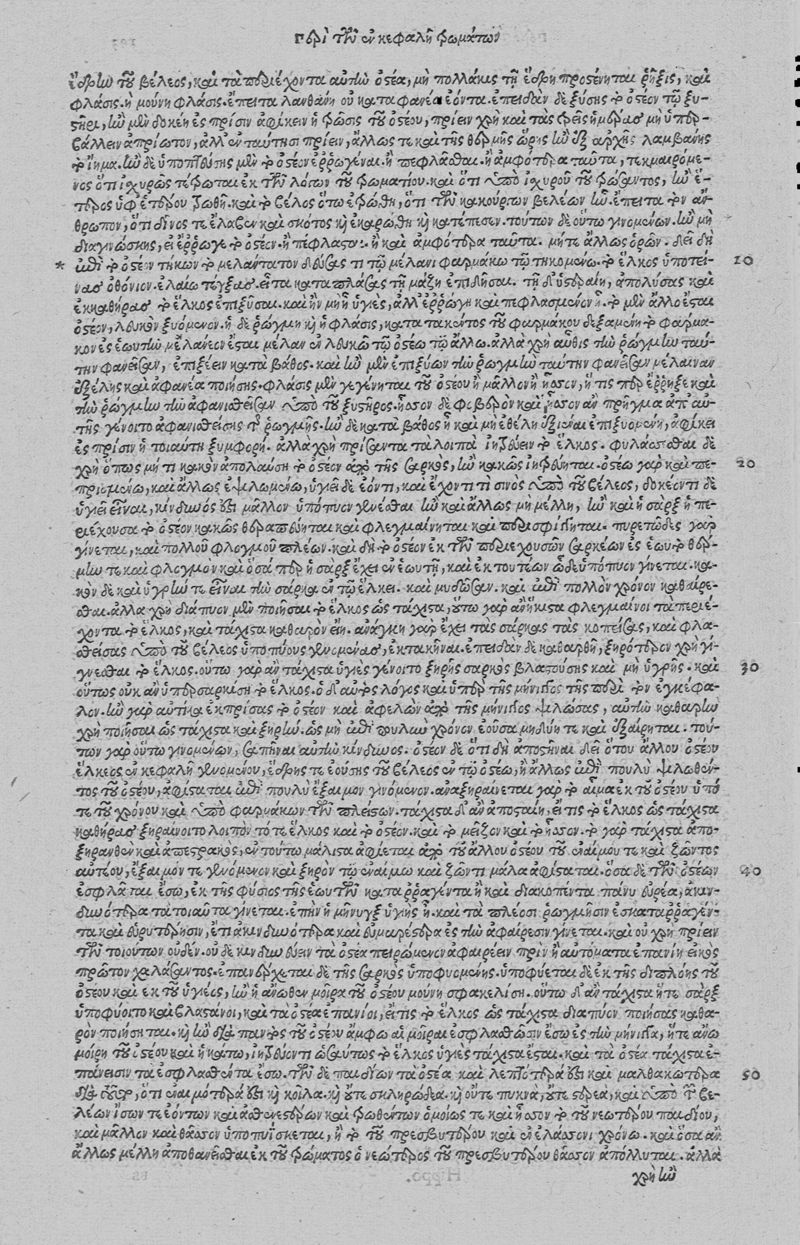 Περὶ τῶν ἐν κεφαλῇ τρωμάτων
ἕδρην τοῦ βέλεος, καὶ τὰ περιέχοντα αὐτὴν ὀστέα, μὴ πολλάκις τῇ ἕδρῃ προσένηται ῥῆξις, καὶ
φλάσις. ἢ μούνη φλάσις. ἔπειτα λανθάνῃ οὐ καταφανέα ἐόντα. ἐπειδὰν δὲ ξύσῃς τὸ ὀστέον τῷ ξυ-
στῆρι, ἢν μὲν δοκέῃ ἐς πρίσιν ἀφίκειν ἡ τρῶσις τοῦ ὀστέου, πρίειν χρὴ καὶ τὰς τρεῖς ἡμέρας μὴ ὑπερ-
βάλλειν ἀπρίωτον, ἀλλ' ἐν ταύτῃσι πρίειν, ἄλλως τε καὶ τῆς θερμῆς ὥρης ἢν ἐξ ἀρχῆς λαμβάνῃς
τὸ ἴημα. ἢν δὲ ὑποπτεύσῃς μὲν τὸ ὀστέον ἐρρωγέναι. ἢ πεφλᾶσθαι. ἢ ἀμφότερα ταῦτα, τεκμαιρόμε-
νος ὅτι ἰσχυρῶς τέτρωται ἐκ τῶν λόγων τοῦ τρωματίου. καὶ ὅτι ὑπὸ ἰσχυροῦ τοῦ τρώσαντος, ἢν ἕ-
τερος ὑφ' ἑτέρου τρωθῇ. καὶ τὸ βέλος ὅτῳ ἐτρώθη, ὅτι τῶν κακούργων βελέων ἢν ἔπειτα τὸν ἄν-
θρωπον, ὅτι δῖνός τε ἔλαβεν καὶ σκότος καὶ ἐκαρώθη καὶ κατέπεσεν. τούτων δὲ οὕτω γινομένων. ἢν μὴ
διαγνώσκῃς, εἰ ἔρρωγε τὸ ὀστέον. ἢ πέφλασται. ἢ καὶ ἀμφότερα ταῦτα. μήτε ἄλλως ὁρῶν. δεῖ δὴ
* ἐπὶ τὸ ὀστέον τῆκων τὸ μελάντατον δεύσας τι τῷ μέλανι φαρμάκῳ τῷ τηκομένῳ. τὸ ἕλκος ὑποτεί- 10
νας ὀθόνιον. ἐλαίῳ τέγξας. εἶτα καταπλάσας τῇ μάζῃ ἐπιδῆσαι. τῇ δ' ὑστεραίῃ, ἀπολύσας καὶ
ἐκκαθήρας τὸ ἕλκος ἐπιξῦσαι. καὶ ἢν μὴ ᾖ ὑγιές, ἀλλ' ἐρρώγῃ καὶ πεφλασμένον ᾖ. τὸ μὲν ἄλλο ἔσται
ὀστέον, λευκὸν ξυόμενον. ἡ δὲ ῥωγμὴ καὶ ἡ φλάσις, κατατακέντος τοῦ φαρμάκου δεξαμένη τὸ φάρμα-
κον ἐς ἑωυτὴν μέλανὲν ἔσται μέλαν ἐν λευκῷ τῷ ὀστέῳ τῷ ἄλλῳ. ἀλλὰ χρὴ αὖθις τὴν ῥωγμὴν ταύ-
την φανεῖσαν, ἐπιξέειν κατὰ βάθος. καὶ ἢν μὲν ἐπιξύων τὴν ῥωγμὴν ταύτην φανεῖσαν μέλαιναν
ἐξέλῃς καὶ ἀφανέα ποιήσῃς. φλάσις μὲν γεγένηται τοῦ ὀστέου ἢ μᾶλλον ἢ ἧσσον, ἥ τις περ ἔρρηξε καὶ
τὴν ῥωγμὴν τὴν ἀφανισθεῖσαν ὑπὸ τοῦ ξυστῆρος. ἧσσον δὲ φοβερὸν καὶ ἧσσον ἂν πρῆγμα ἀπ' αὐ-
τῆς γένοιτο ἀφανισθείσης τῆς ῥωγμῆς. ἢν δὲ κατὰ βάθος ᾖ καὶ μὴ ἐθέλῃ ἐξιέναι ἐπιξυομένη, ἀφίκει
ἐς πρίσιν ἡ τοιαύτη ξυμφορή. ἀλλὰ χρὴ πρίσαντα τὰ λοιπὰ ἰητρεύειν τὸ ἕλκος. φυλάσσεσθαι δὲ
χρὴ ὅπως μή τι κακὸν ἀπολαύσῃ τὸ ὀστέον ἀπὸ τῆς σαρκὸς, ἢν κακῶς ἰητρεύηται. ὀστέῳ γὰρ καὶ πε- 20
πρισμένῳ, καὶ ἄλλως ἐψιλωμένῳ, ὑγιεῖ δὲ ἐόντι, καὶ ἔχοντί τι σῖνος ὑπὸ τοῦ βέλεος, δοκέοντι δὲ
ὑγιεῖ εἶναι, κίνδυνός ἐστι μᾶλλον ὑπόπυον γενέσθαι ἢν καὶ ἄλλως μὴ μέλλῃ, ἢν καὶ ἡ σὰρξ ἡ πε-
ριέχουσα τὸ ὀστέον κακῶς θεραπεύηται καὶ φλεγμαίνηται καὶ περισφίγγηται. πυρετῶδες γὰρ
γίνεται, καὶ πολλοῦ φλογμοῦ πλέων. καὶ δὴ τὸ ὀστέον ἐκ τῶν περιεχουσῶν σαρκέων ἐς ἑωυτὸ θέρ-
μην τε καὶ φλογμὸν καὶ ὅσα περ ἡ σὰρξ ἔχει ἐν ἑωυτῇ, καὶ ἐκ τουτέων ὧδε ὑπόπυον γίνεται. κα-
κὸν δὲ καὶ ὑγρήν τε εἶναι τὴν σάρκα ἐν τῷ ἕλκει. καὶ μυδῶσαν. καὶ ἐπὶ πολλὸν χρόνον καθαίρε-
σθαι. ἀλλὰ χρὴ διάπυον μὲν ποιῆσαι τὸ ἕλκος ὡς τάχιστα, οὕτω γὰρ ἂν ἥκιστα φλεγμαίνοι τὰ περιέ-
χοντα τὸ ἕλκος, καὶ τάχιστα καθαρὸν εἴη. ἀνάγκη γὰρ ἔχει τὰς σάρκας τὰς κοπείσας, καὶ φλα-
σθείσας ὑπὸ τοῦ βέλεος ὑποπύους γενομένας, ἐκτακῆναι. ἐπειδὰν δὲ καθαρθῇ, ξηρότερον χρὴ γί-
γνεσθαι τὸ ἕλκος. οὕτω γὰρ ἂν τάχιστα ὑγιὲς γένοιτο ξηρῆς σαρκὸς βλαστούσης καὶ μὴ ὑγρῆς. καὶ 30
οὕτως οὐκ ἂν ὑπερσαρκήσῃ τὸ ἕλκος. ὁ δ' αὐτὸς λόγος καὶ ὑπὲρ τῆς μήνιγγος τῆς περὶ τὸν ἐγκέφα-
λον. ἢν γὰρ αὐτίκα ἐκπρίσας τὸ ὀστέον καὶ ἀφελὼν ἀπὸ τῆς μήνιγγος ψιλώσῃς, αὐτὴν καθαρὴν
χρὴ ποιῆσαι ὡς τάχιστα καὶ ξηρὴν. ὡς μὴ ἐπὶ πουλὺν χρόνον ἐοῦσα μυδῶῃ τε καὶ ἐξαίρηται. τού-
των γὰρ οὕτω γινομένων, σαπῆναι αὐτὴν κίνδυνος. ὀστέον δὲ ὅτι δὴ ἀποστῆναι δεῖ ὅτου ἄλλου ὀστέου
ἕλκεος ἐν κεφαλῇ γενομένου, ἕδρης τε ἐούσης τοῦ βέλεος ἐν τῷ ὀστέῳ, ἢ ἄλλως ἐπὶ πουλὺ ψιλωθέν-
τος τοῦ ὀστέου, ἀφίσταται ἐπὶ πουλὺ ἔξαιμον γινόμενον. ἀναξηραίνεται γὰρ τὸ αἷμα ἐκ τοῦ ὀστέου ὑπό
τε τοῦ χρόνου καὶ ὑπὸ φαρμάκων τῶν πλείστων. τάχιστα δ' ἂν ἀποσταίη, εἴ τις τὸ ἕλκος ὡς τάχιστα
καθήρας ξηραίνοι τολοιπὸν τό τε ἕλκος καὶ τὸ ὀστέον. καὶ τὸ μεῖζον καὶ τὸ ἧσσον. τὸ γὰρ τάχιστα ἀπο-
ξηρανθὲν καὶ ἀποστρακωθὲν, τούτῳ μάλιστα ἀφίσταται ἀπὸ τοῦ ἄλλου ὀστέου τοῦ ἐναίμου τε καὶ ζῶντος
αὐτέου, ἔξαιμόν τε γενόμενον καὶ ξηρὸν τῷ ἐναίμῳ καὶ ζῶντι μάλα ἀφίσταται. ὅσα δὲ τῶν ὀστέων 40
ἐσφλᾶται ἔσω, ἐκ τῆς φύσιος τῆς ἑωυτῶν καταρραγέντα ἢ καὶ διακοπέντα πάνυ εὐρέα, ἀκιν-
δυνότερα τὰ τοιαῦτα γίνεται. ἐπὴν ἡ μῆνιγξ ὑγιὴς ᾖ. καὶ τὰ πλέοσι ῥωγμῇσιν ἐσκαταρραγέν-
τα καὶ εὐρυτέρῃσιν, ἔτι ἀκινδυνότερα καὶ εὐμαρέστερα ἐς τὴν ἀφαίρεσιν γίνεται. καὶ οὐ χρὴ πρίειν
τῶν τοιούτων οὐδέν. οὐδὲ κινδυνεύειν τὰ ὀστέα πειρώμενον ἀφαιρέειν πρὶν ἢ αὐτόματα ἐπανίῃ εἰκὸς
πρῶτον χαλάσαντος. ἐπανέρχεται δὲ τῆς σαρκὸς ὑποφυομένης. ὑποφύεται δὲ ἐκ τῆς διπλόης τοῦ
ὀστέου καὶ ἐκ τοῦ ὑγιέος, ἢν ἡ ἄνωθεν μοῖρα τοῦ ὀστέου μούνη σφακελίσῃ. οὕτω δ' ἂν τάχιστα ἥ τε σὰρξ
ὑποφύοιτο καὶ βλαστάνοι, καὶ τὰ ὀστέα ἐπανίοι, εἴ τις τὸ ἕλκος ὡς τάχιστα διάπυον ποιήσας καθα-
ρὸν ποιήσηται. καὶ ἢν διὰ παντὸς τοῦ ὀστέου ἄμφω αἱ μοῖραι ἐσφλασθῶσιν ἔσω ἐς τὴν μήνιγγα, ἥ τε ἄνω
μοίρη τοῦ ὀστέου καὶ ἡ κάτω, ἰητρεύοντι ὡσαύτως τὸ ἕλκος ὑγιὲς τάχιστα ἔσται. καὶ τὰ ὀστέα τάχιστα ἐ-
πάνεισιν τὰ ἐσφλασθέντα ἔσω. τῶν δὲ παιδίων τὰ ὀστέα καὶ λεπτότερά ἐστι καὶ μαλθακώτερα 50
διὰ τοῦτο, ὅτι ἐναιμότερά ἐστι καὶ κοῖλα. καὶ οὔτε σκληρὰ. καὶ οὔτε πυκνὰ, οὔτε στερεὰ, καὶ ὑπὸ τῶν βε-
λέων ἴσων τε ἐόντων καὶ ἀσθενεστέρων καὶ τρωθέντων ὁμοίως τε καὶ ἧσσον τὸ τοῦ νεωτέρου παιδίου,
καὶ μᾶλλον καὶ θᾶσσον ὑποπυΐσκεται, ἢ τὸ τοῦ πρεσβυτέρου καὶ ἐν ἐλάσσονι χρόνῳ. καὶ ὅσα ἂν
ἄλλως μέλλῃ ἀποθανεῖσθαι ἐκ τοῦ τρώματος ὁ νεώτερος τοῦ πρεσβυτέρου θᾶσσον ἀπόλλυται. ἀλλὰ
χρὴ ἢν